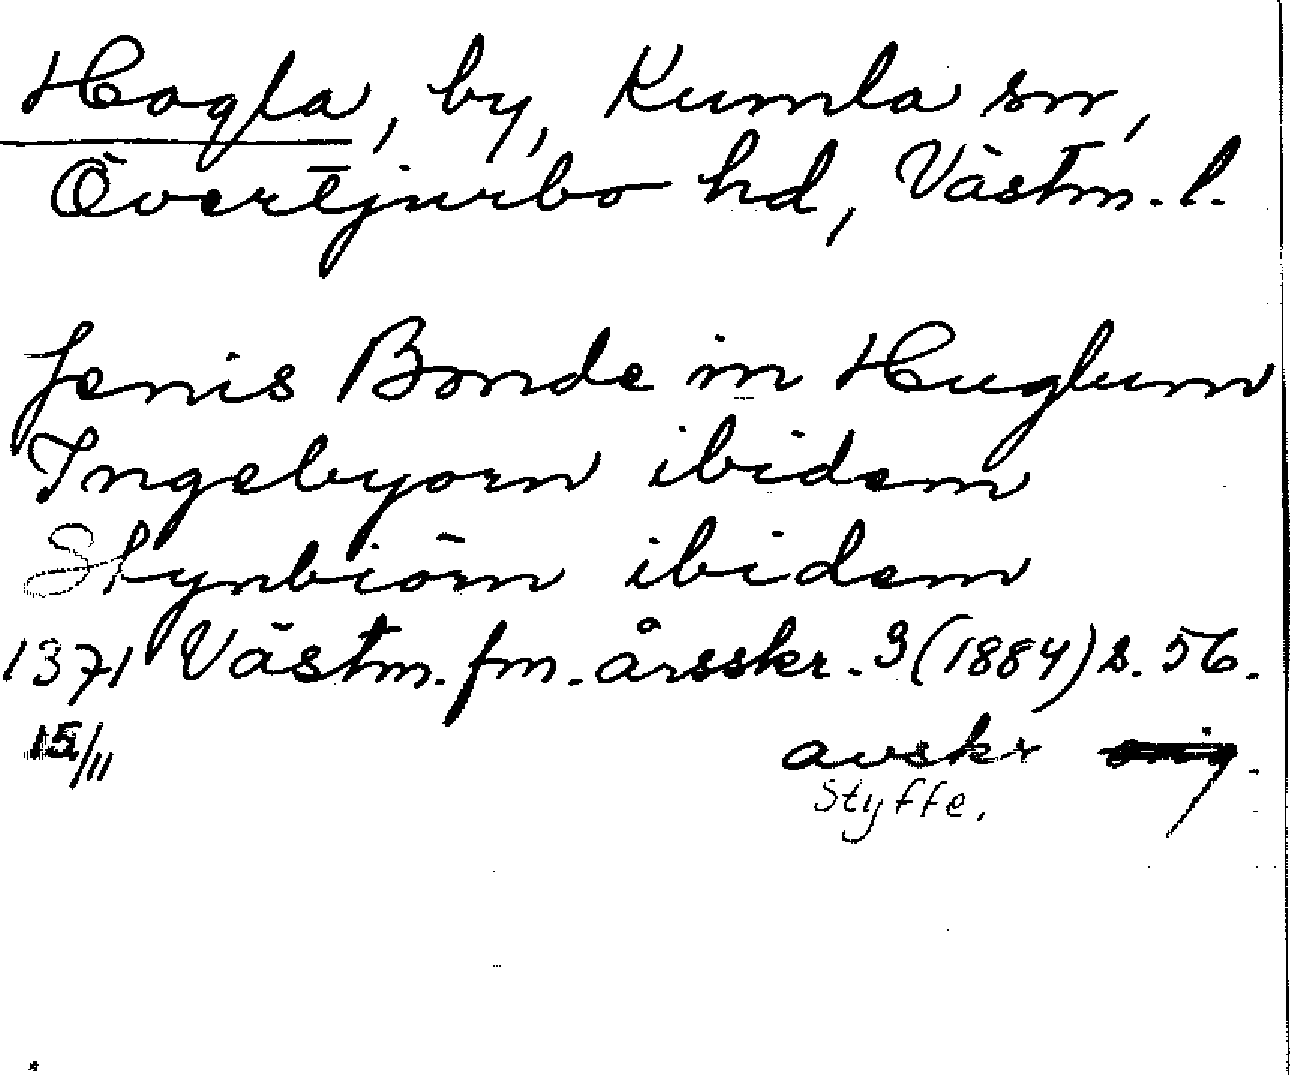 Hogla, by, Kumla sn,
Övertjurbo hd, Västm. l.
Jenis Bonde in Huglum
Ingebyorn ibidem
Stynbiörn ibidem
1371 Västm. fm. årsskr. 3 (1884) s. 56.
15/11 avskr
Styffe.